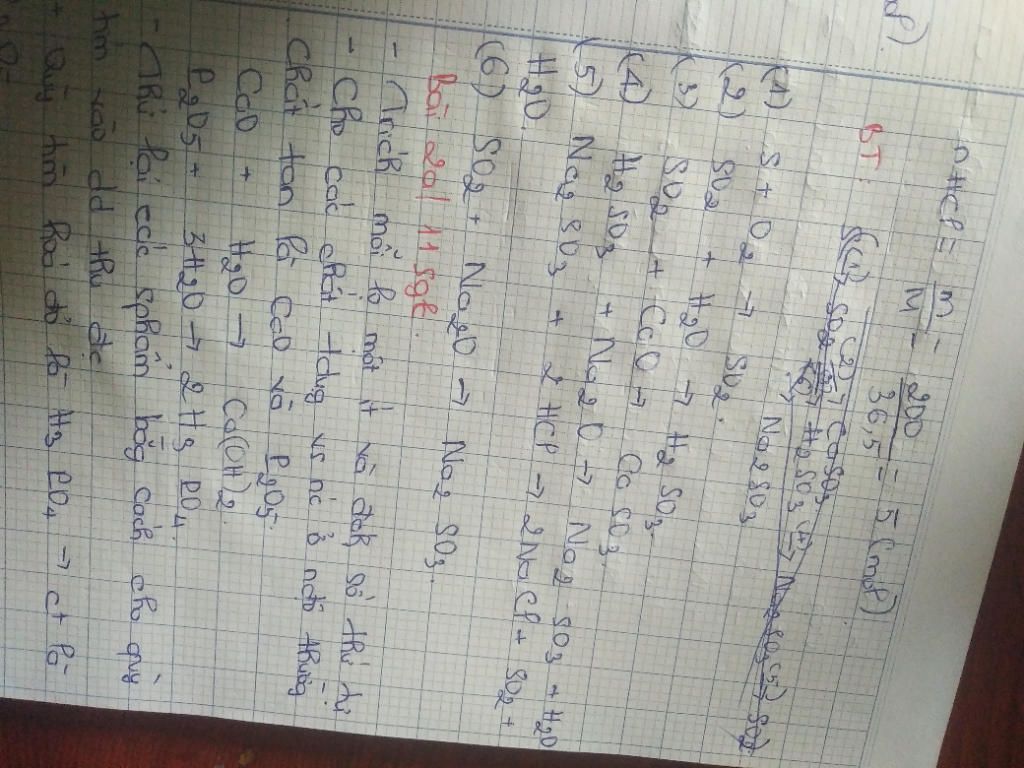 nHCl = m/M = 200/36,5 = 5 (mol)
BT:
S (1) SO2 (2) CaSO3
H2SO3 (4) Na2SO3 (5) SO2
Na2SO3
(1) S + O2 → SO2.
(2) SO2 + H2O → H2SO3
(3) SO2 + CaO → CaSO3
(4) H2SO3 + Na2O → Na2SO3 + H2O
(5) Na2SO3 + 2HCl → 2NaCl + SO2 +
H2O.
(6) SO2 + Na2O → Na2SO3.
Bài 2a/ 11 sgk.
- Trích mỗi lọ một ít và đánh số thứ tự
- Cho các chất tdụng vs nc ở nđộ thường
Chất tan là CaO và P2O5.
CaO + H2O → Ca(OH)2.
P2O5 + 3H2O → 2H3PO4.
- Thử lại các sphẩm bằng cách cho quỳ
tím vào dd thu đc
+ Quỳ tím hóa đỏ là H3PO4 → ct là